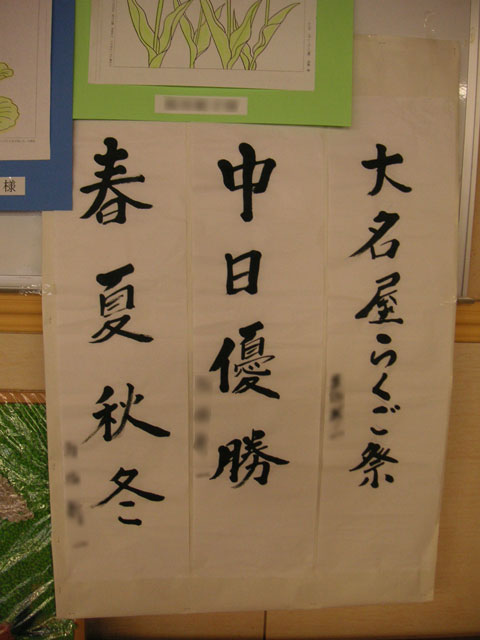 大名屋らくご祭
中日優勝
春夏秋冬
様